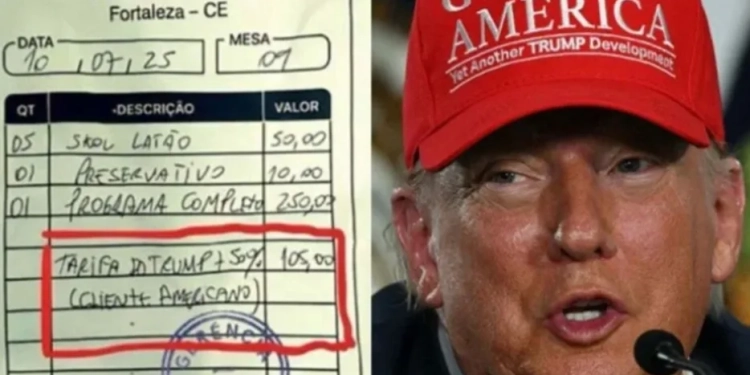 Fortaleza – CE
DATA
10 , 07 , 25
MESA
QT DESCRIÇÃO VALOR
05 SKOL LATÃO 50,00
01 PRESERVATIVO 10,00
01 PROGRAMA COMPLETO 250,00
TARIFA DO TRUMP + 50% 105,00
(CLIENTE AMERICANO)
GERÊNCIA
AMERICA
Yet Another TRUMP Development